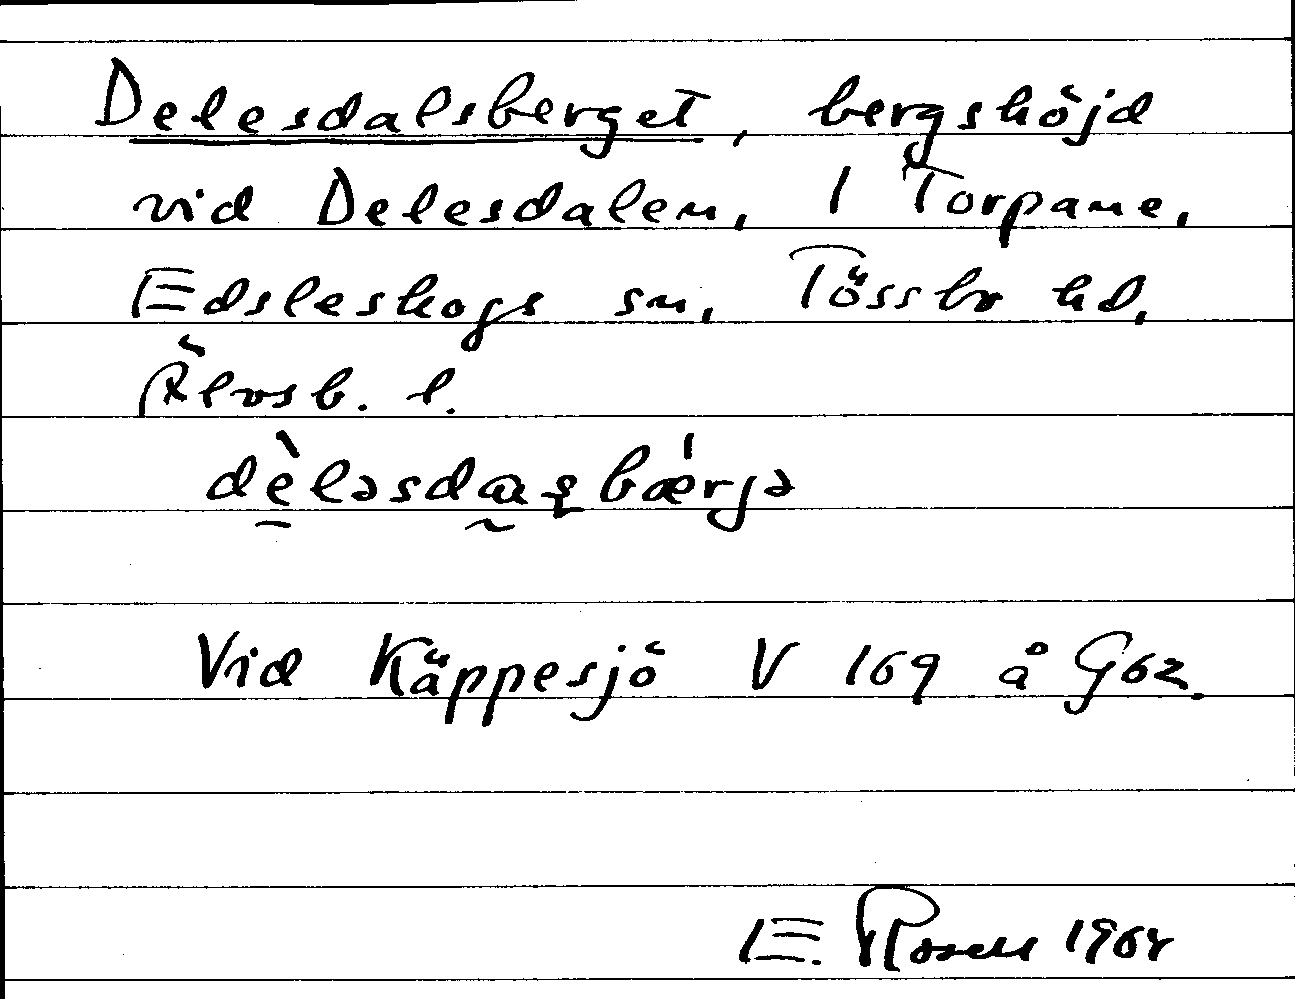 Delesdalsberget, bergshöjd
vid Delesdalen, 1 Torpane,
Edsleskogs sn, Tössbo hd,
Älvsb. l.
Vid Käppesjö V 169 å G62.
E. Rosell